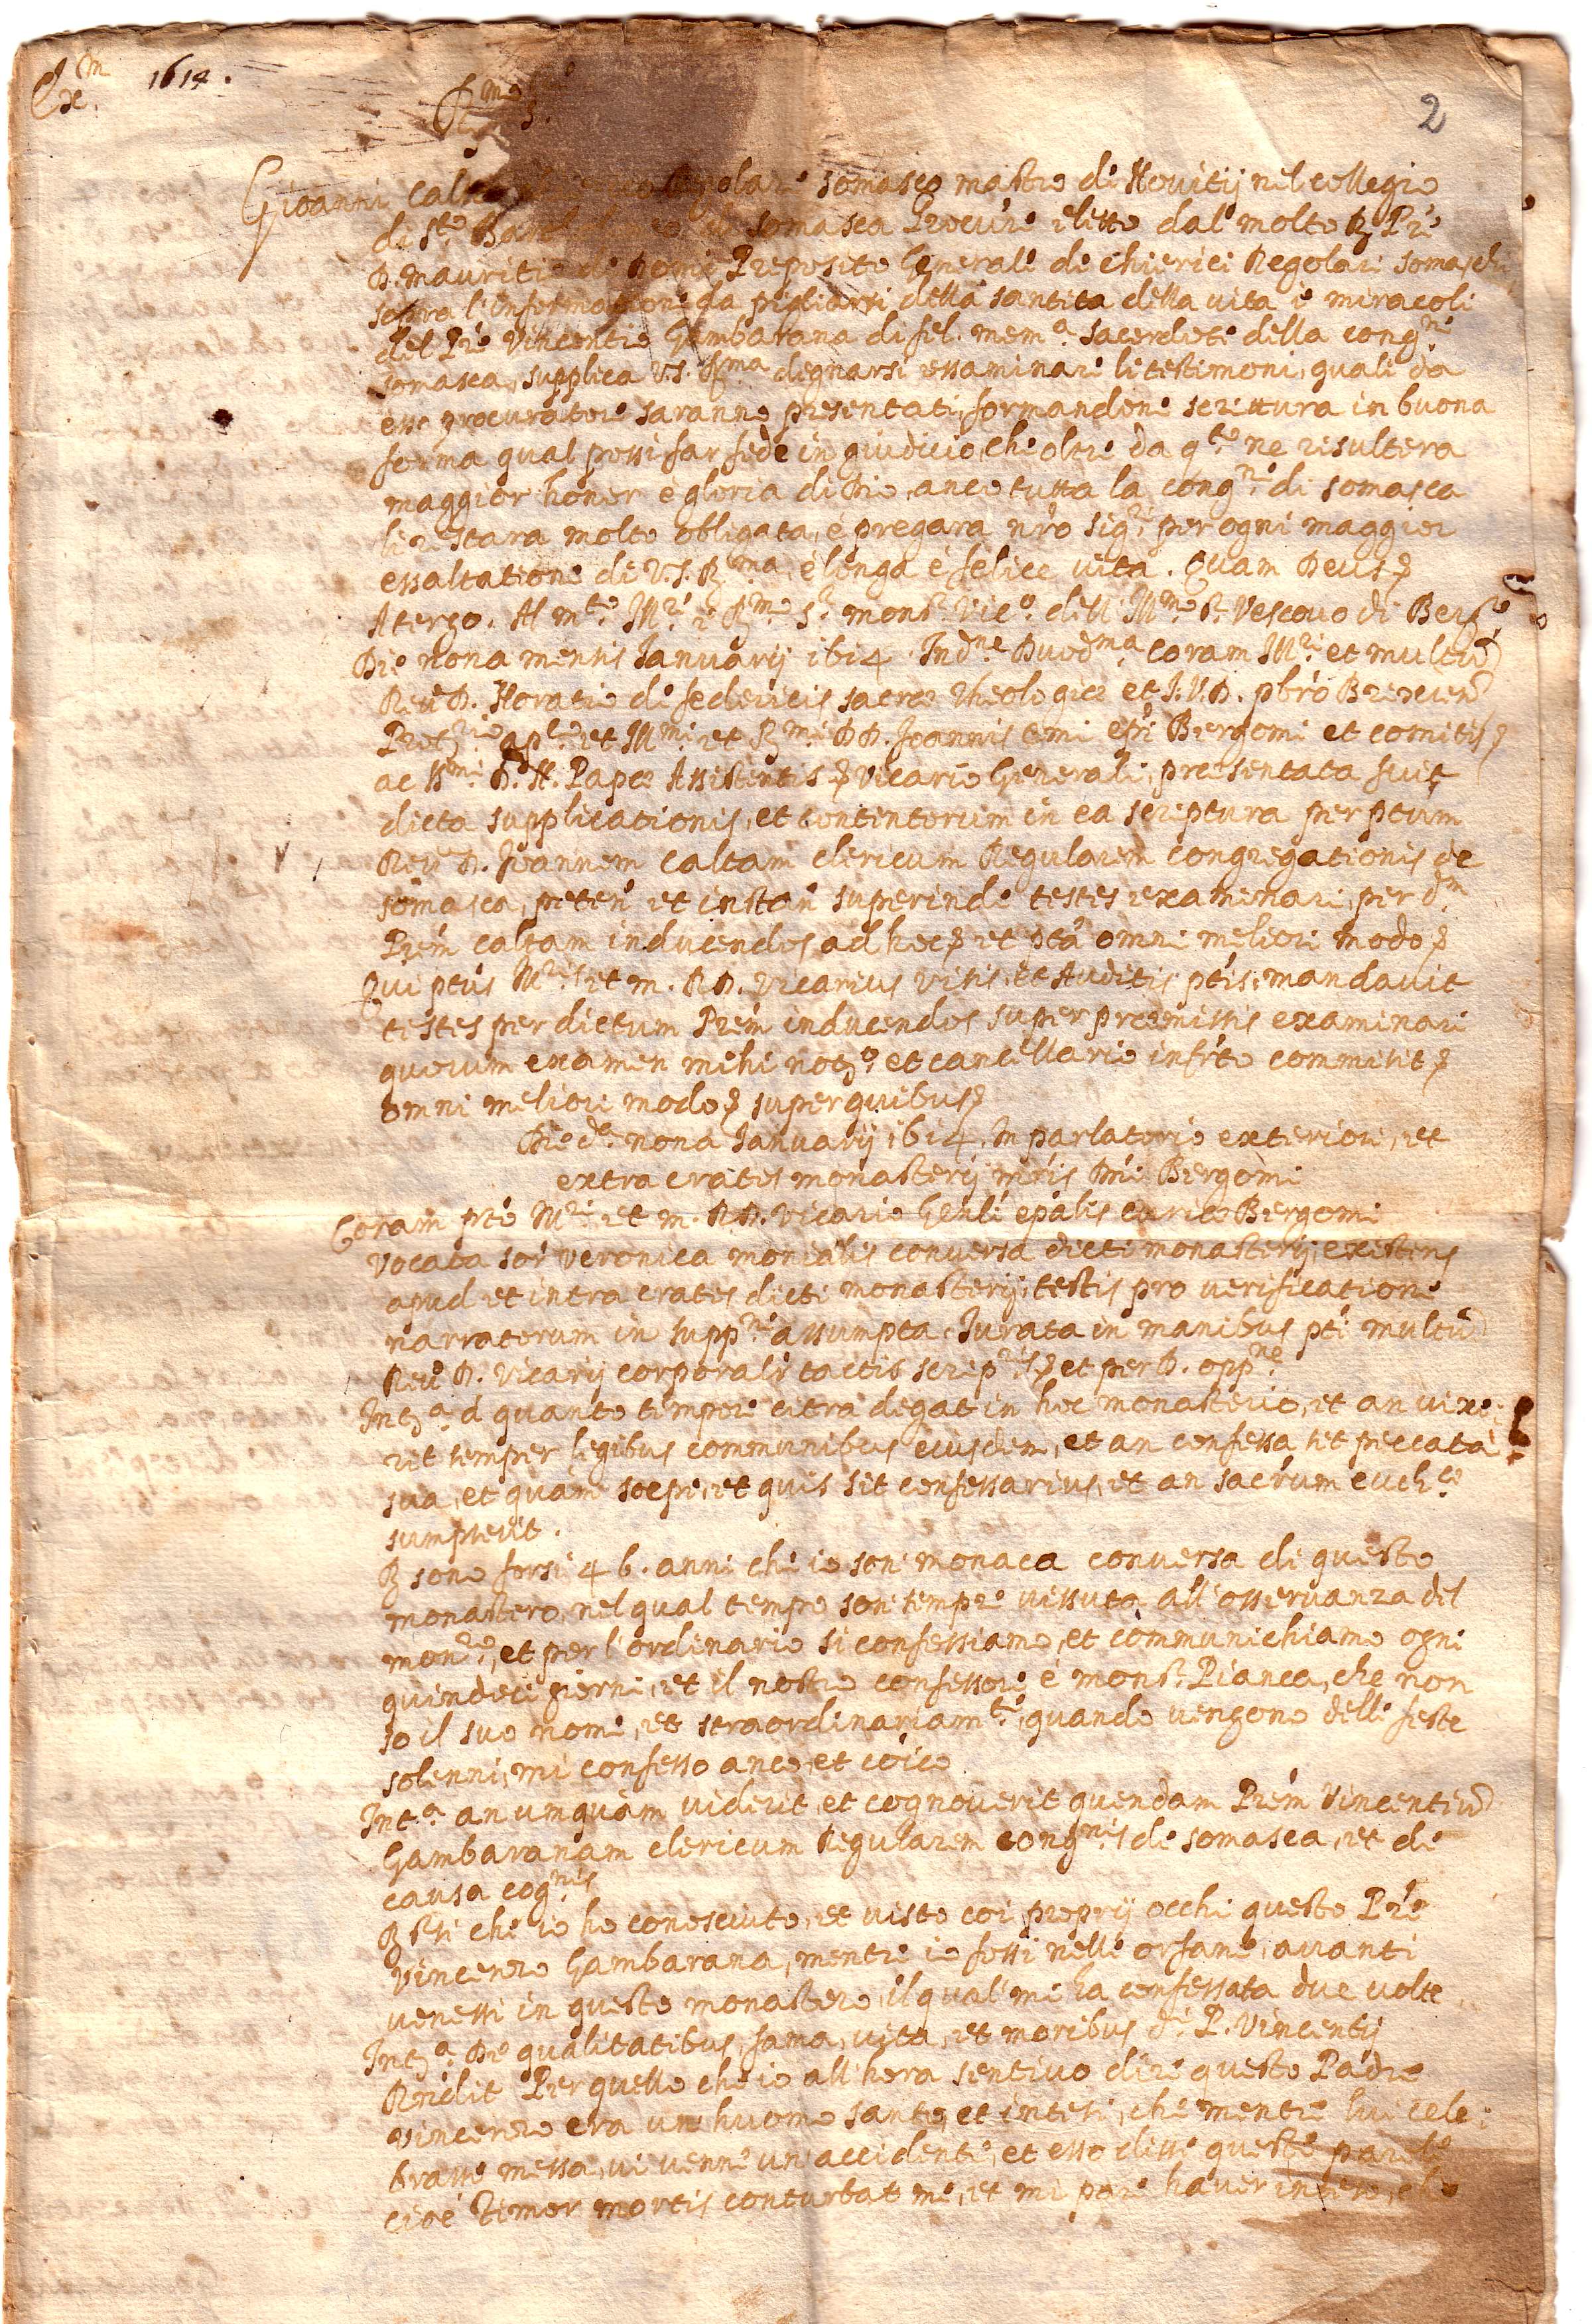 1614.
2
Gioanni Calta somasco mastro di Novitij nel collegio
di S.to somasca Procur.e eletto dal molto R. Pre
D. Mauritio di Preposito Generale di Chierici Regolari somaschi
sopra l'informatione da pigliarsi della santita della vita è miracoli
del Pre Vincentio Gambarana di fel. mem.a sacerdote della cong.ne
somasca, supplica V.S. R.ma degnarsi essaminare li testimoni, quali da
esso procuratore saranno presentati, formandone scrittura in buona
forma qual possi far fede in giudicio, che oltre da q.to ne risultera
maggior honor è gloria di Dio, anco tutta la cong.ne di somasca
li restara molto obligata, è pregara nro Sig.re per ogni maggior
essaltatione di V.S. R.ma, è longa è felice vita. Quam Deus
A tergo. Al m.to Ill.re e R.mo S.r mons.r Vic.o dell Ill.mo S.r Vescovo di Berg.o
Die nona mensis Januarij 1614. Ind.ne Duod.ma Coram Ill.ri et multu
Reu D. Horatio de federicis sacræ Theologiæ et I.V.D. pbro Brixien
ap.lico et Ill.mi et R.mi DD. Joannis Emi epi Bergomi et comitis
ac SS.mi D. N. Papæ Assistentis Vicario Generali, præsentata fuit
dicta supplicationis, et contentorum in ea scriptura per ptum
Reu D. Joannem Caltam clericum Regularem congregationis de
somasca, peten et instan superinde testes examinari, per d.m
Prem Caltam inducendos ad hoc et ita omni meliori modo
Qui ptus Ill.ris et m. R.D. Vicarius visis, et Auditis ptis, mandavit
testes per dictum Prem inducendos super præmissis examinari
quorum examen mihi not.o et cancellario infrto commisit
omni meliori modo super quibus
Die d.a nona Januarij 1614. in parlatorio exteriori, et
extra crates monasterij Bergomi
Coram pto Ill.ri et m. R.D. Vicario Genli epalis curiæ Bergomi
Vocata sor Veronica monialis conversa dicti monasterij, existens
apud et intra crates dicti monasterij, testis pro verificatione
narratorum in supp.ne assumpta. Jurata in manibus pti multu
Reu D. Vicarij corporalr tactis scrip.ris et per D. opp.ne
Int.a à quanto tempore citra degat in hoc monasterio, et an vixe:
rit semper legibus communibus eiusdem, et an confessa sit peccata
sua, et quàm sæpe, et quis sit confessarius, et an sacrum euch.co
sumpserit.
R sono forsi 46. anni che io son monaca conversa di questo
monastero, nel qual tempo son sempre vissuta all'osservanza del
mon.ro, et per l'ordinario si confessiamo, et communichiamo ogni
quindeci giorni, et il nostro confessore è mons.r Pianca, che non
so il suo nome, et straordinariam.te, quando vengono delle feste
solenni, mi confesso anco, et coico
Int.a an umquàm viderit, et cognoverit quendam Prem Vincentiu
Gambaranam clericum Regularem cong.nis de somasca, et de
causa cog.nis
R sri che io ho conosciuto, et visto coi proprij occhi questo Pre
Vincenzo Gambarana, mentre io fossi nelle orfane, avanti
venessi in questo monastero, il qual mi ha confessata due volte
Int.a De qualitatibus, fama, vita, et moribus d.i P. Vincentij
Rndit Per quello che io all'hora sentivo dire questo Padre
Vincenzo era un huomo santo, et intesi, che mentre lui cele:
brasse messa, vi venne un accidente, et esso disse queste parole
cioè Timor mortis conturbat me, et mi pare haver inteso, che